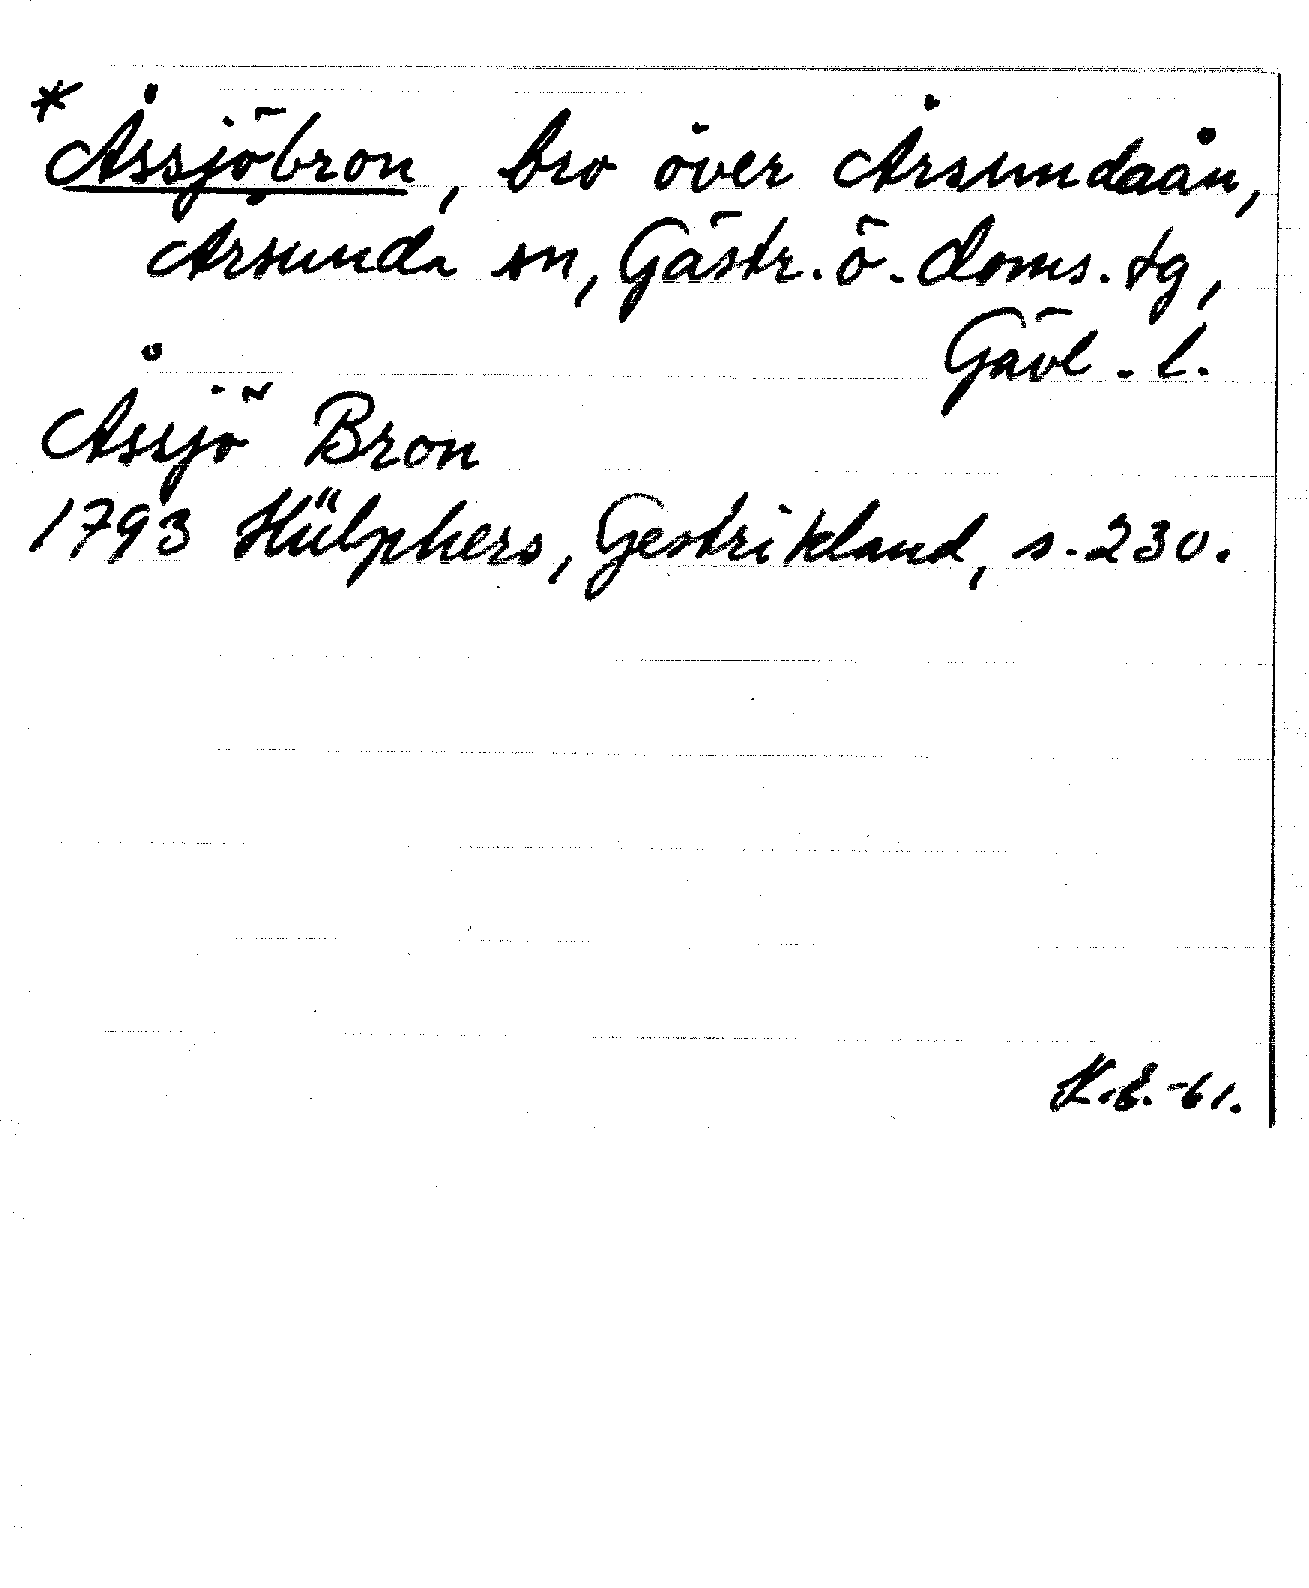 *Åssjöbron, bro över Årsundaån,
Årsunda sn, Gästr. ö. doms. tg,
Gävl. l.
Åssjö Bron
1793 Hülphers, Gestrikland, s. 230.
K.E. -61.